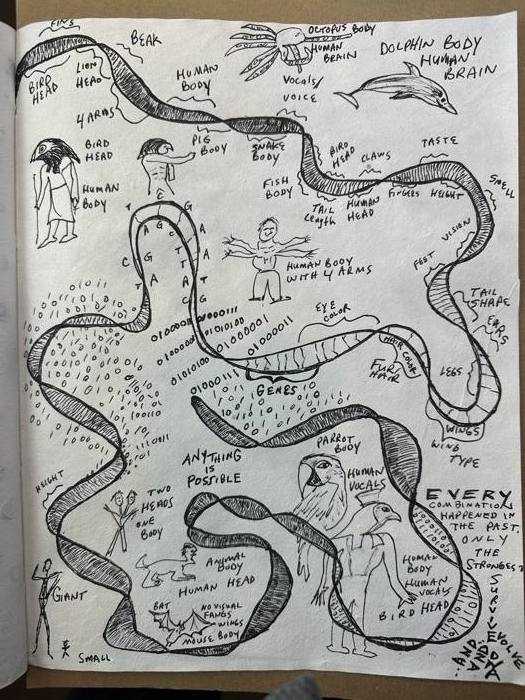 FINS
BEAK
OCTOPUS BODY
HUMAN
BRAIN
DOLPHIN BODY
HUMAN
BRAIN
BIRD
HEAD
LION
HEAD
HUMAN
BODY
VOCALS/
VOICE
4 ARMS
BIRD
HEAD
HUMAN
BODY
PIG
BODY
SNAKE
BODY
BIRD
HEAD
CLAWS
TASTE
FISH
BODY
TAIL
LENGTH
HUMAN
HEAD
FINGERS
HEIGHT
SMELL
VISION
FEET
HUMAN BODY
WITH 4 ARMS
TAIL
SHAPE
EARS
EYE
COLOR
HAIR COLOR
FUR/
HAIR
LEGS
WINGS
WING
TYPE
01000011
01000001
01010100
01000111
GENES
PARROT
BODY
HUMAN
VOCALS
ANYTHING
IS
POSSIBLE
HEIGHT
TWO
HEADS
ONE
BODY
ANIMAL
BODY
HUMAN HEAD
GIANT
SMALL
BAT
NO VISUAL
FANGS
WINGS
MOUSE BODY
HUMAN
BODY
HUMAN
VOCALS
BIRD HEAD
EVERY
COMBINATION
HAPPENED IN
THE PAST.
ONLY
THE
STRONGEST
SURVIVE